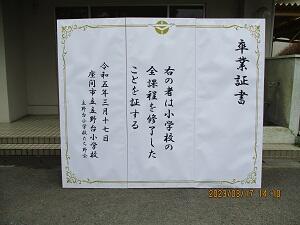 卒業証書
右の者は小学校の
全課程を修了した
ことを証する
令和五年三月十七日
座間市立立野台小学校
立野台小学校
2023/03/17 14:10